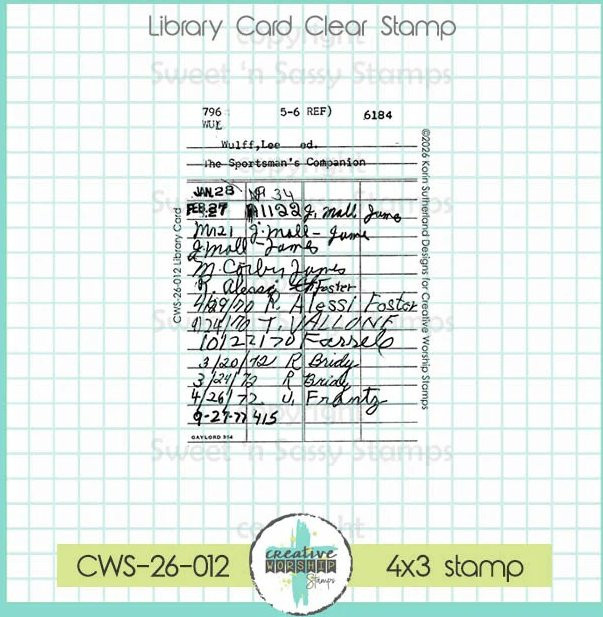 Library Card Clear Stamp
copyright
Sweet 'n Sassy Stamps
796 5-6 REF) 6184
WUL
Wulff,Lee ed.
The Sportsman's Companion
JAN 28 34
FEB 27 1122 J. Moll James
Mr 21 J. Moll - James
J. Moll - James
M. Corby James
R. Alessi Foster
4/29/70 R. Alessi Foster
9/24/70 T. VALLONE
10/22/70 Farrell
3/20/72 R Bridy
3/24/72 R Bridy
4/26/72 U. Frantz
9-27-77 415
GAYLORD 354
CWS-26-012 Library Card
©2026 Karin Sutherland Designs for Creative Worship Stamps
copyright
Sweet 'n Sassy Stamps
copyright
CWS-26-012
creative
WORSHIP
Stamps
4x3 stamp